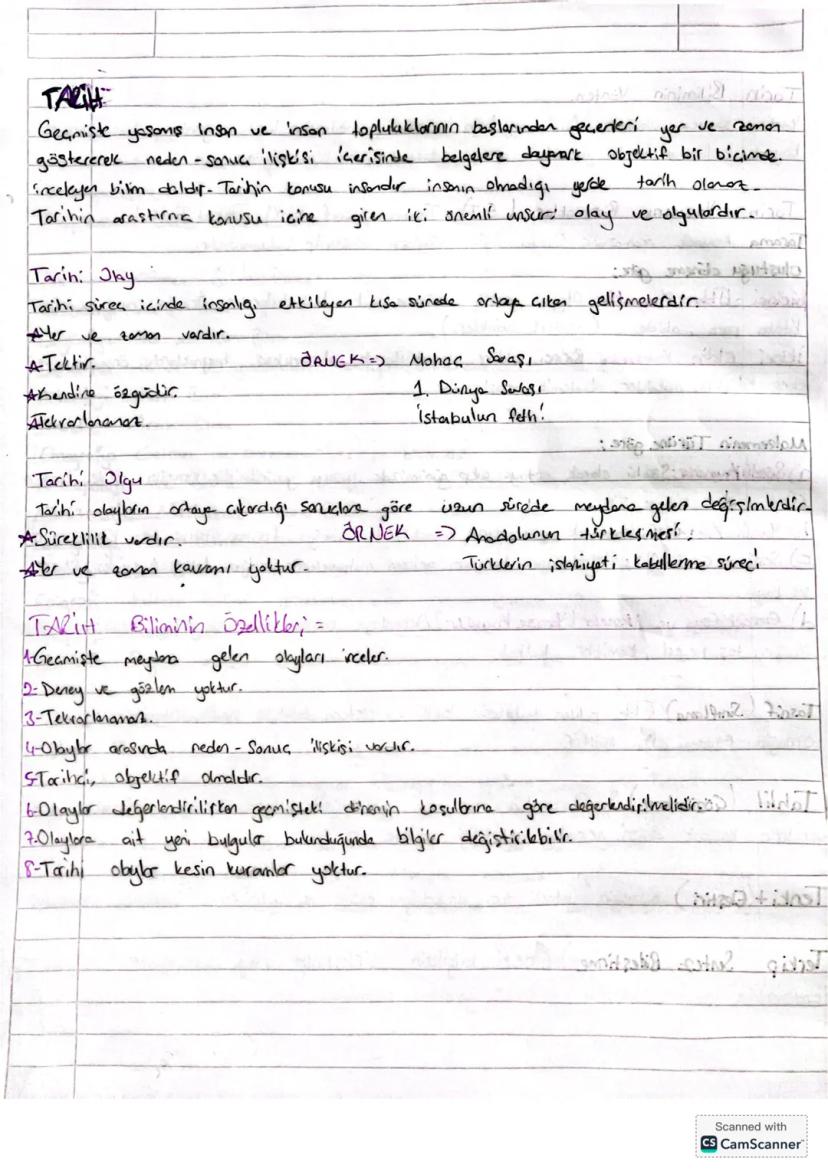 TARİH
Geçmişte yaşamış insan ve insan topluluklarının başlarından geçenleri yer ve zaman
göstererek neden-sonuç ilişkisi içerisinde belgelere dayanarak objektif bir biçimde.
inceleyen bilim dalıdır. Tarihin konusu insandır insanın olmadığı yerde tarih olamaz.
Tarihin araştırma konusu içine giren iki önemli unsur: olay ve olgulardır.
Tarihi Olay
Tarihi süreç içinde insanlığı etkileyen kısa sürede ortaya çıkan gelişmelerdir.
Yer ve zaman vardır.
Tektir. ÖRNEK => Mohaç Savaşı
Kendine özgüdür. 1. Dünya Savaşı
Tekrarlanamaz. İstabulun fethi
Tarihi Olgu
Tarihi olayların ortaya çıkardığı sonuçlara göre uzun sürede meydana gelen değişimlerdir.
Süreklilik vardır. ÖRNEK => Anadolunun türkleşmesi.
Yer ve zaman kavramı yoktur. Türklerin islamiyeti kabullerme süreci
TARİH Biliminin Özellikleri =
1-Geçmişte meydana gelen olayları inceler.
2-Deney ve gözlem yoktur.
3-Tekrarlanamaz.
4-Olaylar arasında neden-sonuç ilişkisi vardır.
5-Tarihçi, objektif olmalıdır.
6-Olaylar değerlendirilirken geçmişteki dönemin koşullarına göre değerlendirilmelidir.
7-Olaylara ait yeni bulgular bulunduğunda bilgiler değiştirilebilir.
8-Tarihi olaylar kesin kuramlar yoktur.
Scanned with
CS CamScanner